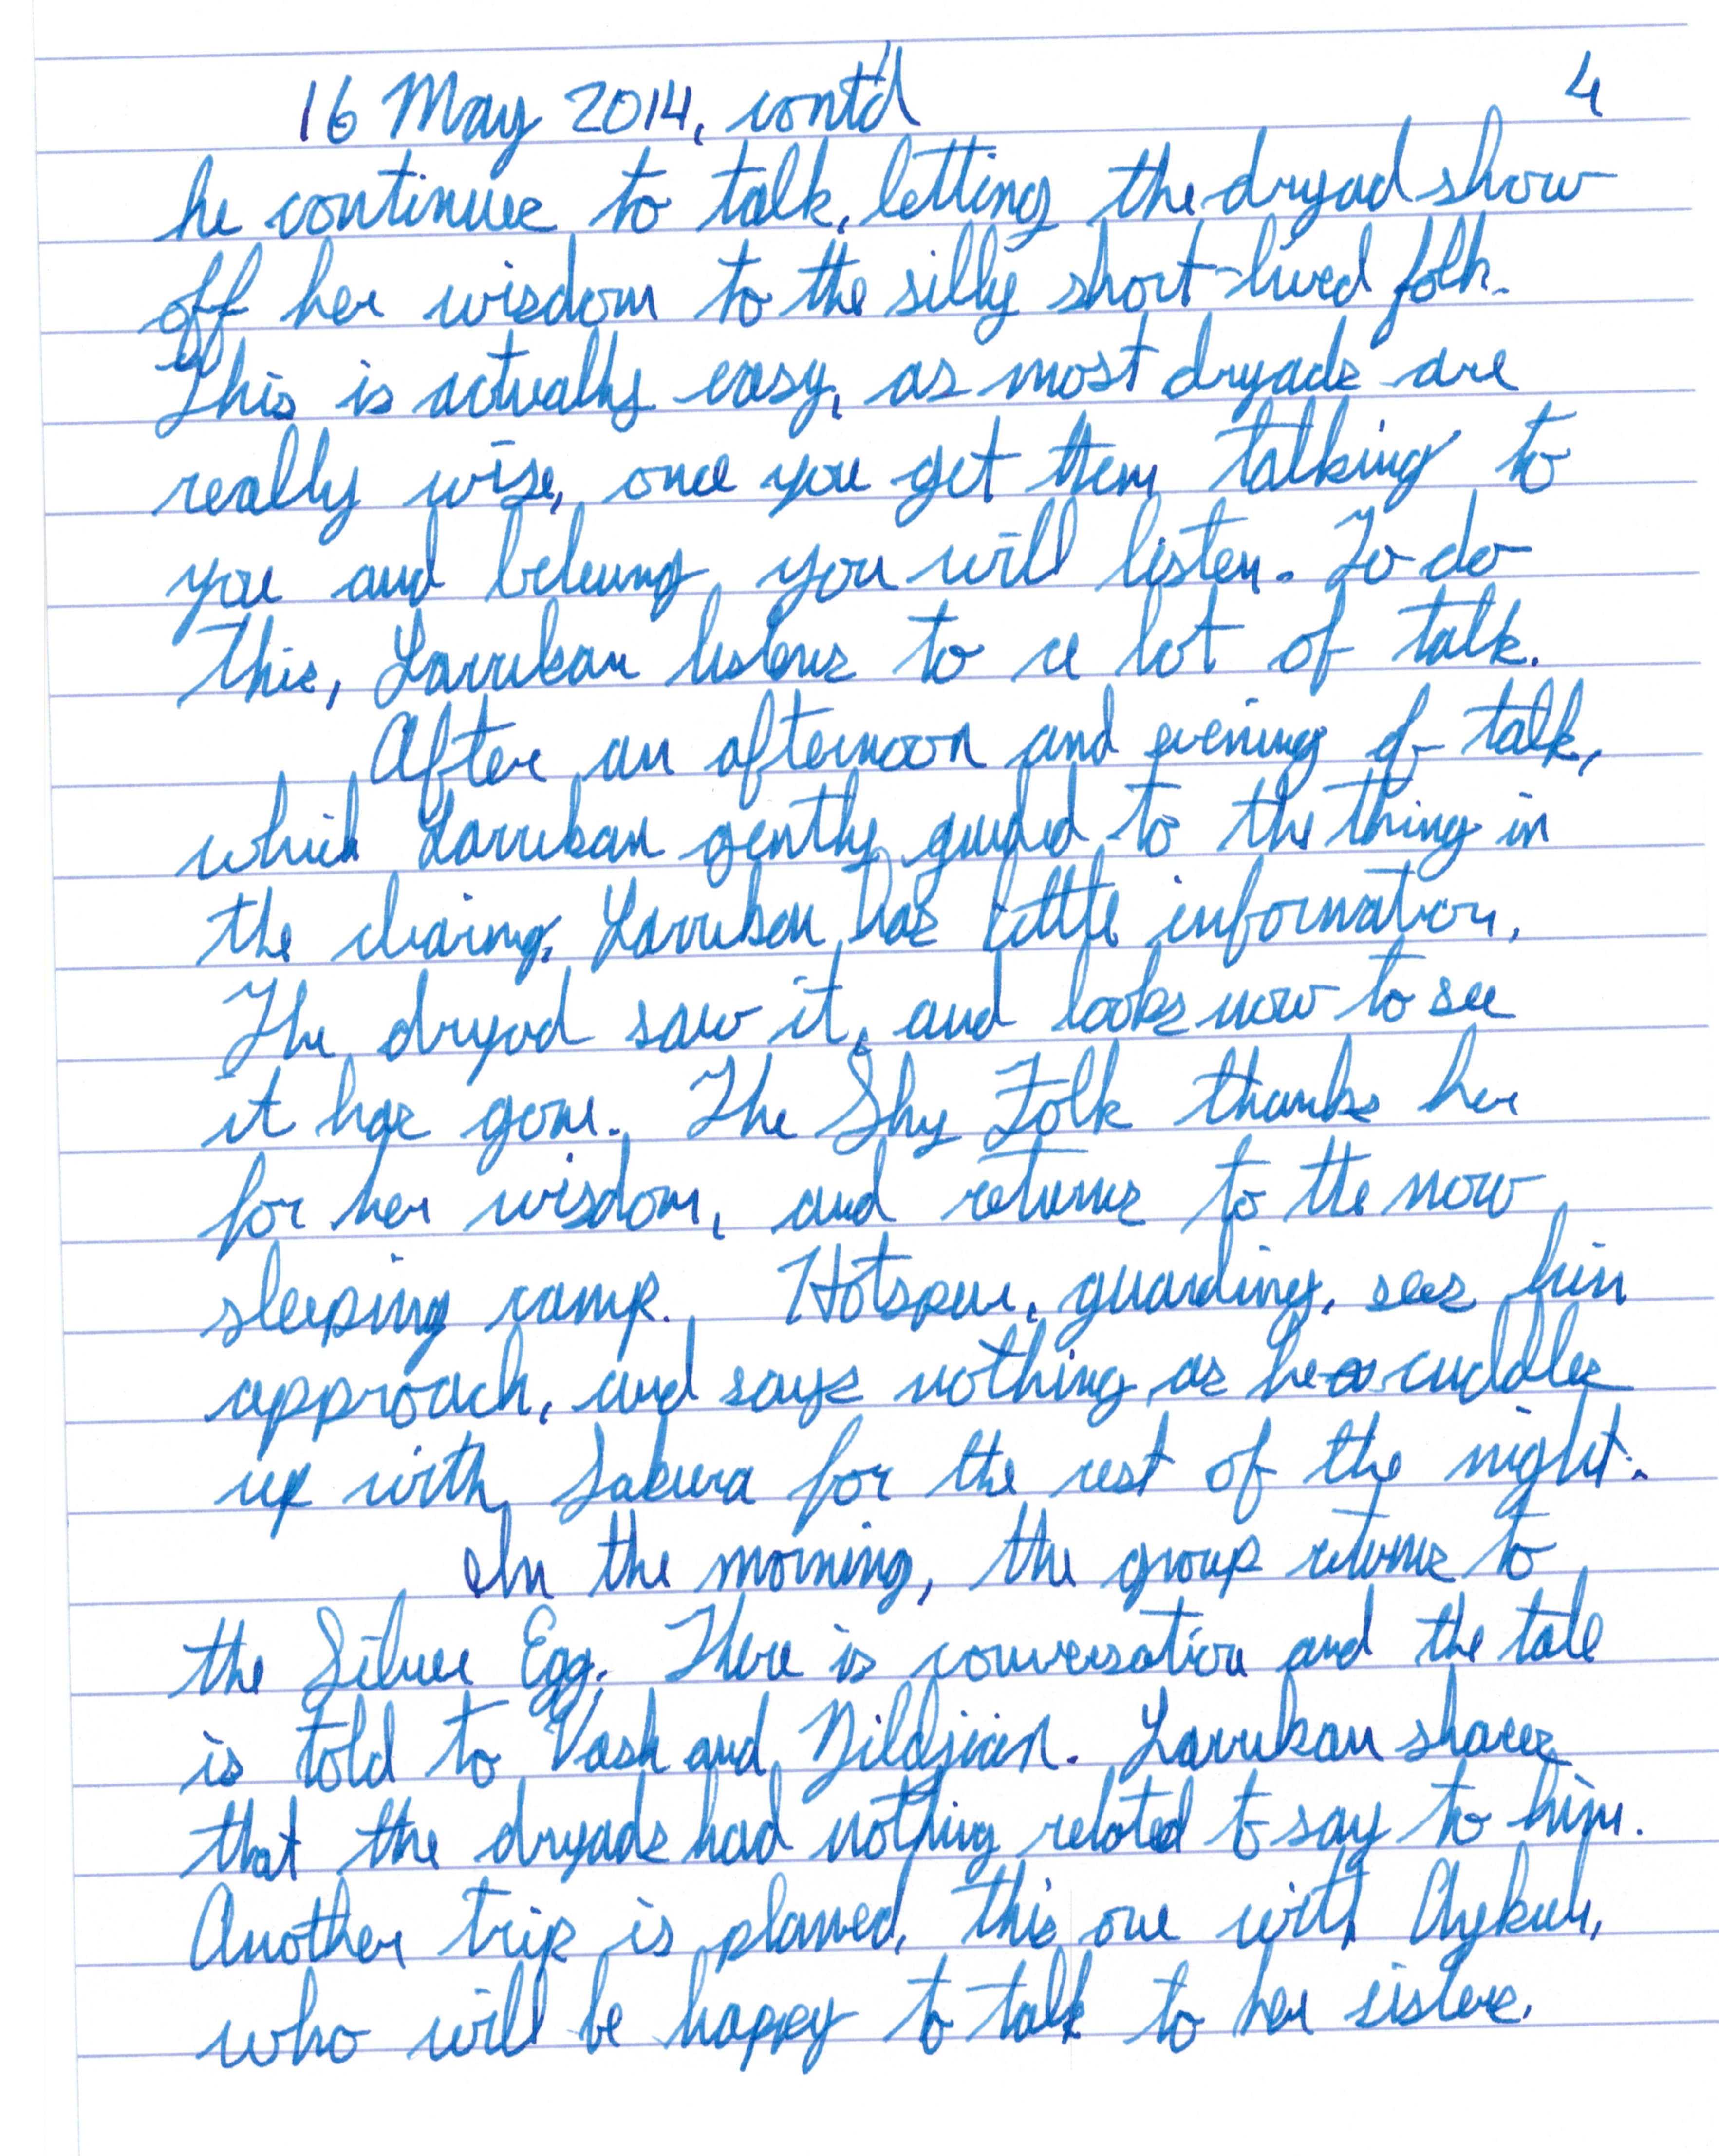 16 May 2014, cont'd 4
he continues to talk, letting the dryad show
off her wisdom to the silly short-lived folk.
This is actually easy, as most dryads are
really wise, once you get them talking to
you and believing you will listen. To do
this, Larrikan listens to a lot of talk.
After an afternoon and evening of talk,
which Larrikan gently guided to the thing in
the clearing, Larrikan has little information.
The dryad saw it, and looks now to see
it has gone. The Shy Folk thanks her
for her wisdom, and returns to the now
sleeping camp. Hotspur, guarding, sees him
approach, and says nothing as he cuddles
up with Sakura for the rest of the night.
In the morning, the group returns to
the Silver Egg. There is conversation and the tale
is told to Vash and Zildjian. Larrikan shares
that the dryads had nothing related to say to him.
Another trip is planned, this one with
who will be happy to talk to her sisters.